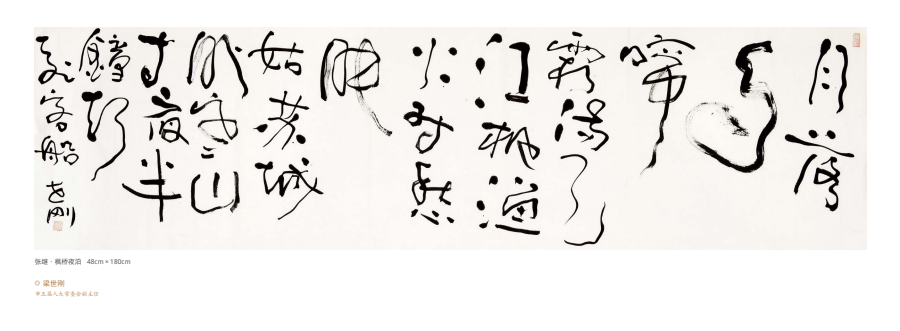 月落
乌
啼
霜满天
江枫渔
火对愁
眠
姑苏城
外寒山
寺夜半
钟声到
客船
世刚
张继 · 枫桥夜泊 48cm×180cm
梁世刚
市五届人大常委会副主任